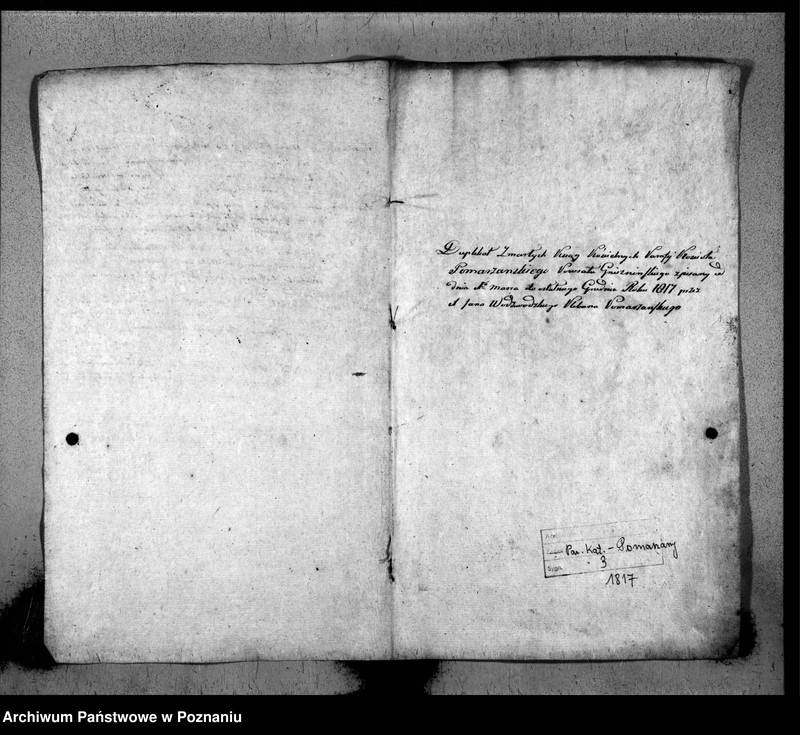 Duplikat Zmarłych Xsiąg Kościelnych Parafij Kościoła
Pomarzanskiego Powiatu Gnieznińskiego zpisany od
dnia 1go marca do ostatniego Grudnia Roku 1817 przez
X Jana Plebana Pomarzańskiego
Par. Kat. - Pomarzany
Sygn. 3
1817
Archiwum Państwowe w Poznaniu